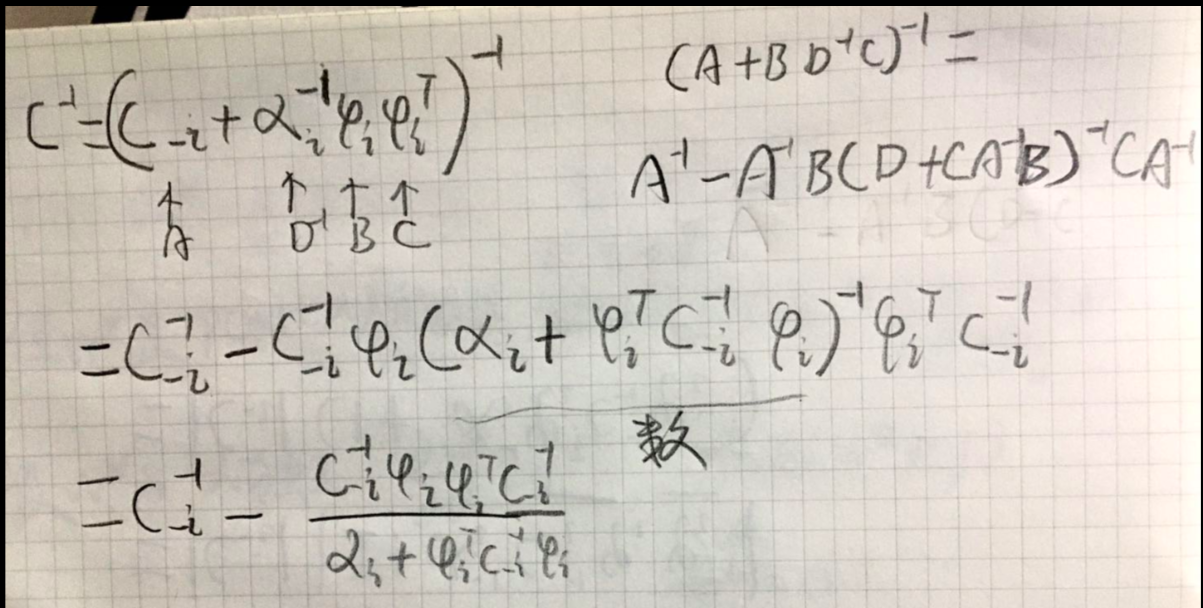 C⁻¹=(C₋ᵢ+αᵢ⁻¹φᵢφᵢᵀ)⁻¹
↑ ↑ ↑ ↑
A D⁻¹ B C
(A+BD⁻¹C)⁻¹=
A⁻¹-A⁻¹B(D+CA⁻¹B)⁻¹CA⁻¹
=C₋ᵢ⁻¹-C₋ᵢ⁻¹φᵢ(αᵢ+φᵢᵀC₋ᵢ⁻¹φᵢ)⁻¹φᵢᵀC₋ᵢ⁻¹
数
=C₋ᵢ⁻¹-\frac{C₋ᵢ⁻¹φᵢφᵢᵀC₋ᵢ⁻¹}{αᵢ+φᵢᵀC₋ᵢ⁻¹φᵢ}